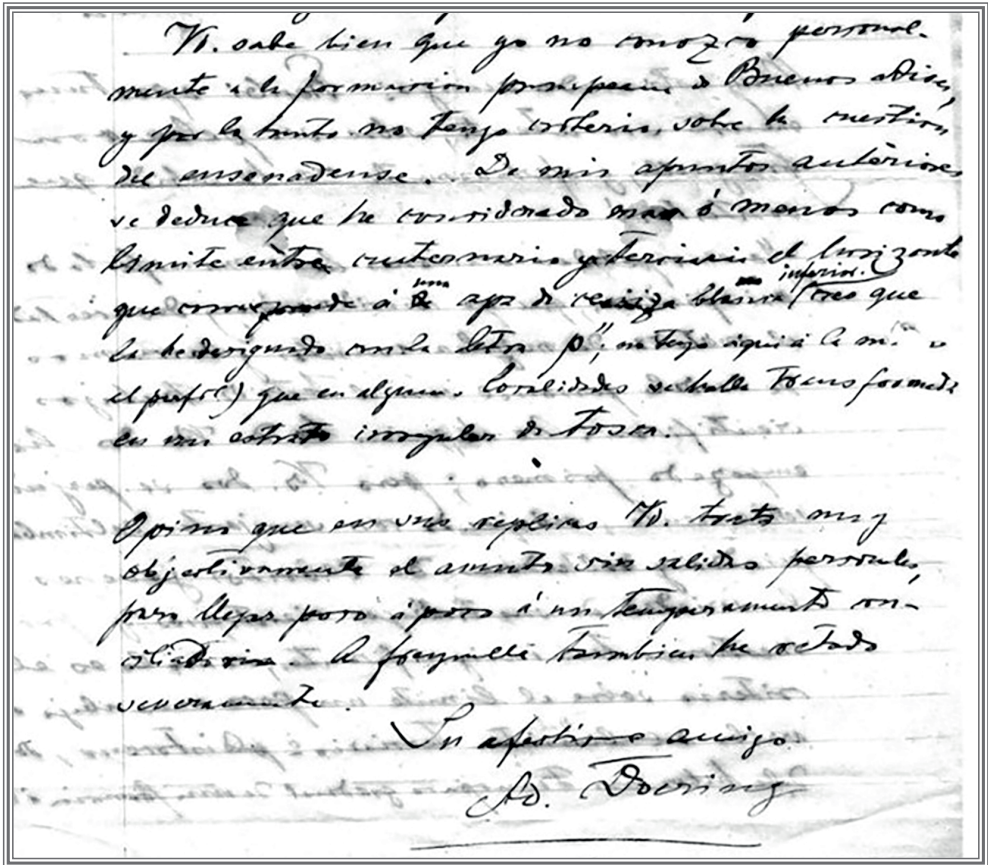 Vd. sabe bien que yo no conozco personal-
mente a la formacion pampeana de Buenos Aires,
y por lo tanto no tengo criterio, sobre la cuestion
del ensenadense. De mis apuntes anteriores
se deduce que he considerado mas ó menos como
límite entre cuaternario y terciario el horizonte
que corresponde á una capa de ceniza blanca inferior. (creo que
la he designado con la letra p"; no tengo aquí á la mano
el perfil) que en algunas localidades se halla transformada
en un estrato irregular de tosca.
Opino que en sus replicas Vd. trate muy
objectivamente el asunto sin salidas personales,
para llegar poco á poco á un temperamento con-
ciliatorio. A Frenguelli tambien he retado
severamente.
Su afectísimo amigo
Ad. Doering